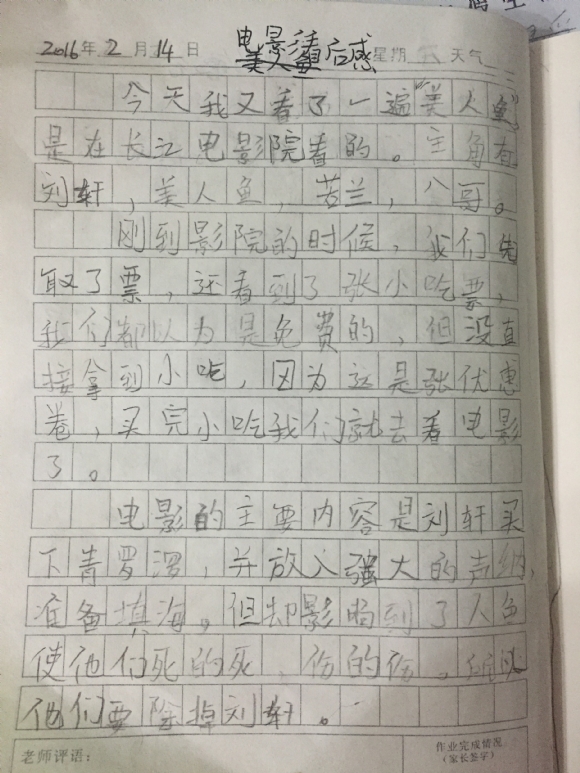 2016年2月14日 电影美人鱼后感 星期 天气
今天我又看了一遍"美人鱼"
是在长江电影院看的。主角有
刘轩，美人鱼，若兰，八哥。
刚到影院的时候，我们先
取了票，还看到了张小吃票，
我们都以为是免费的，但没直
接拿到小吃，因为这是张优惠
卷，买完小吃我们就去看电影
了。
电影的主要内容是刘轩买
下青罗湾，并放入强大的声纳，
准备填海。但却影响到了人鱼
使他们死的死，伤的伤，所以
他们要除掉刘轩。
老师评语：
作业完成情况
（家长签字）